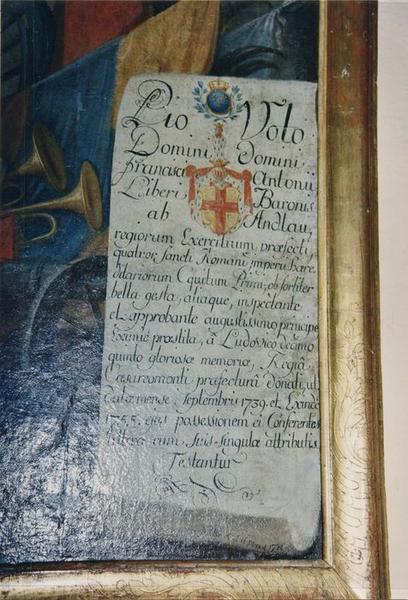 Pio Voto
Domini Domini
Francisci Antonii
Liberi Baronis
ab Andlau
regiorum Exercituum præfecti,
quatror sancti Romani imperii hære
ditariorum Equitum Primi, ob fortiter
bella gesta, aliaque, inspectante
et approbante augustissimo principe
Eximiè præstita, à Ludovico decimo
quinto gloriosæ memoriæ, Regia
Cæsareomonti præfectura donati, ut
Septembris 1739. et Exinde
1755. ejus possessionem ei Conferentes
Litteræ cum suis singulæ attributis
Testantur